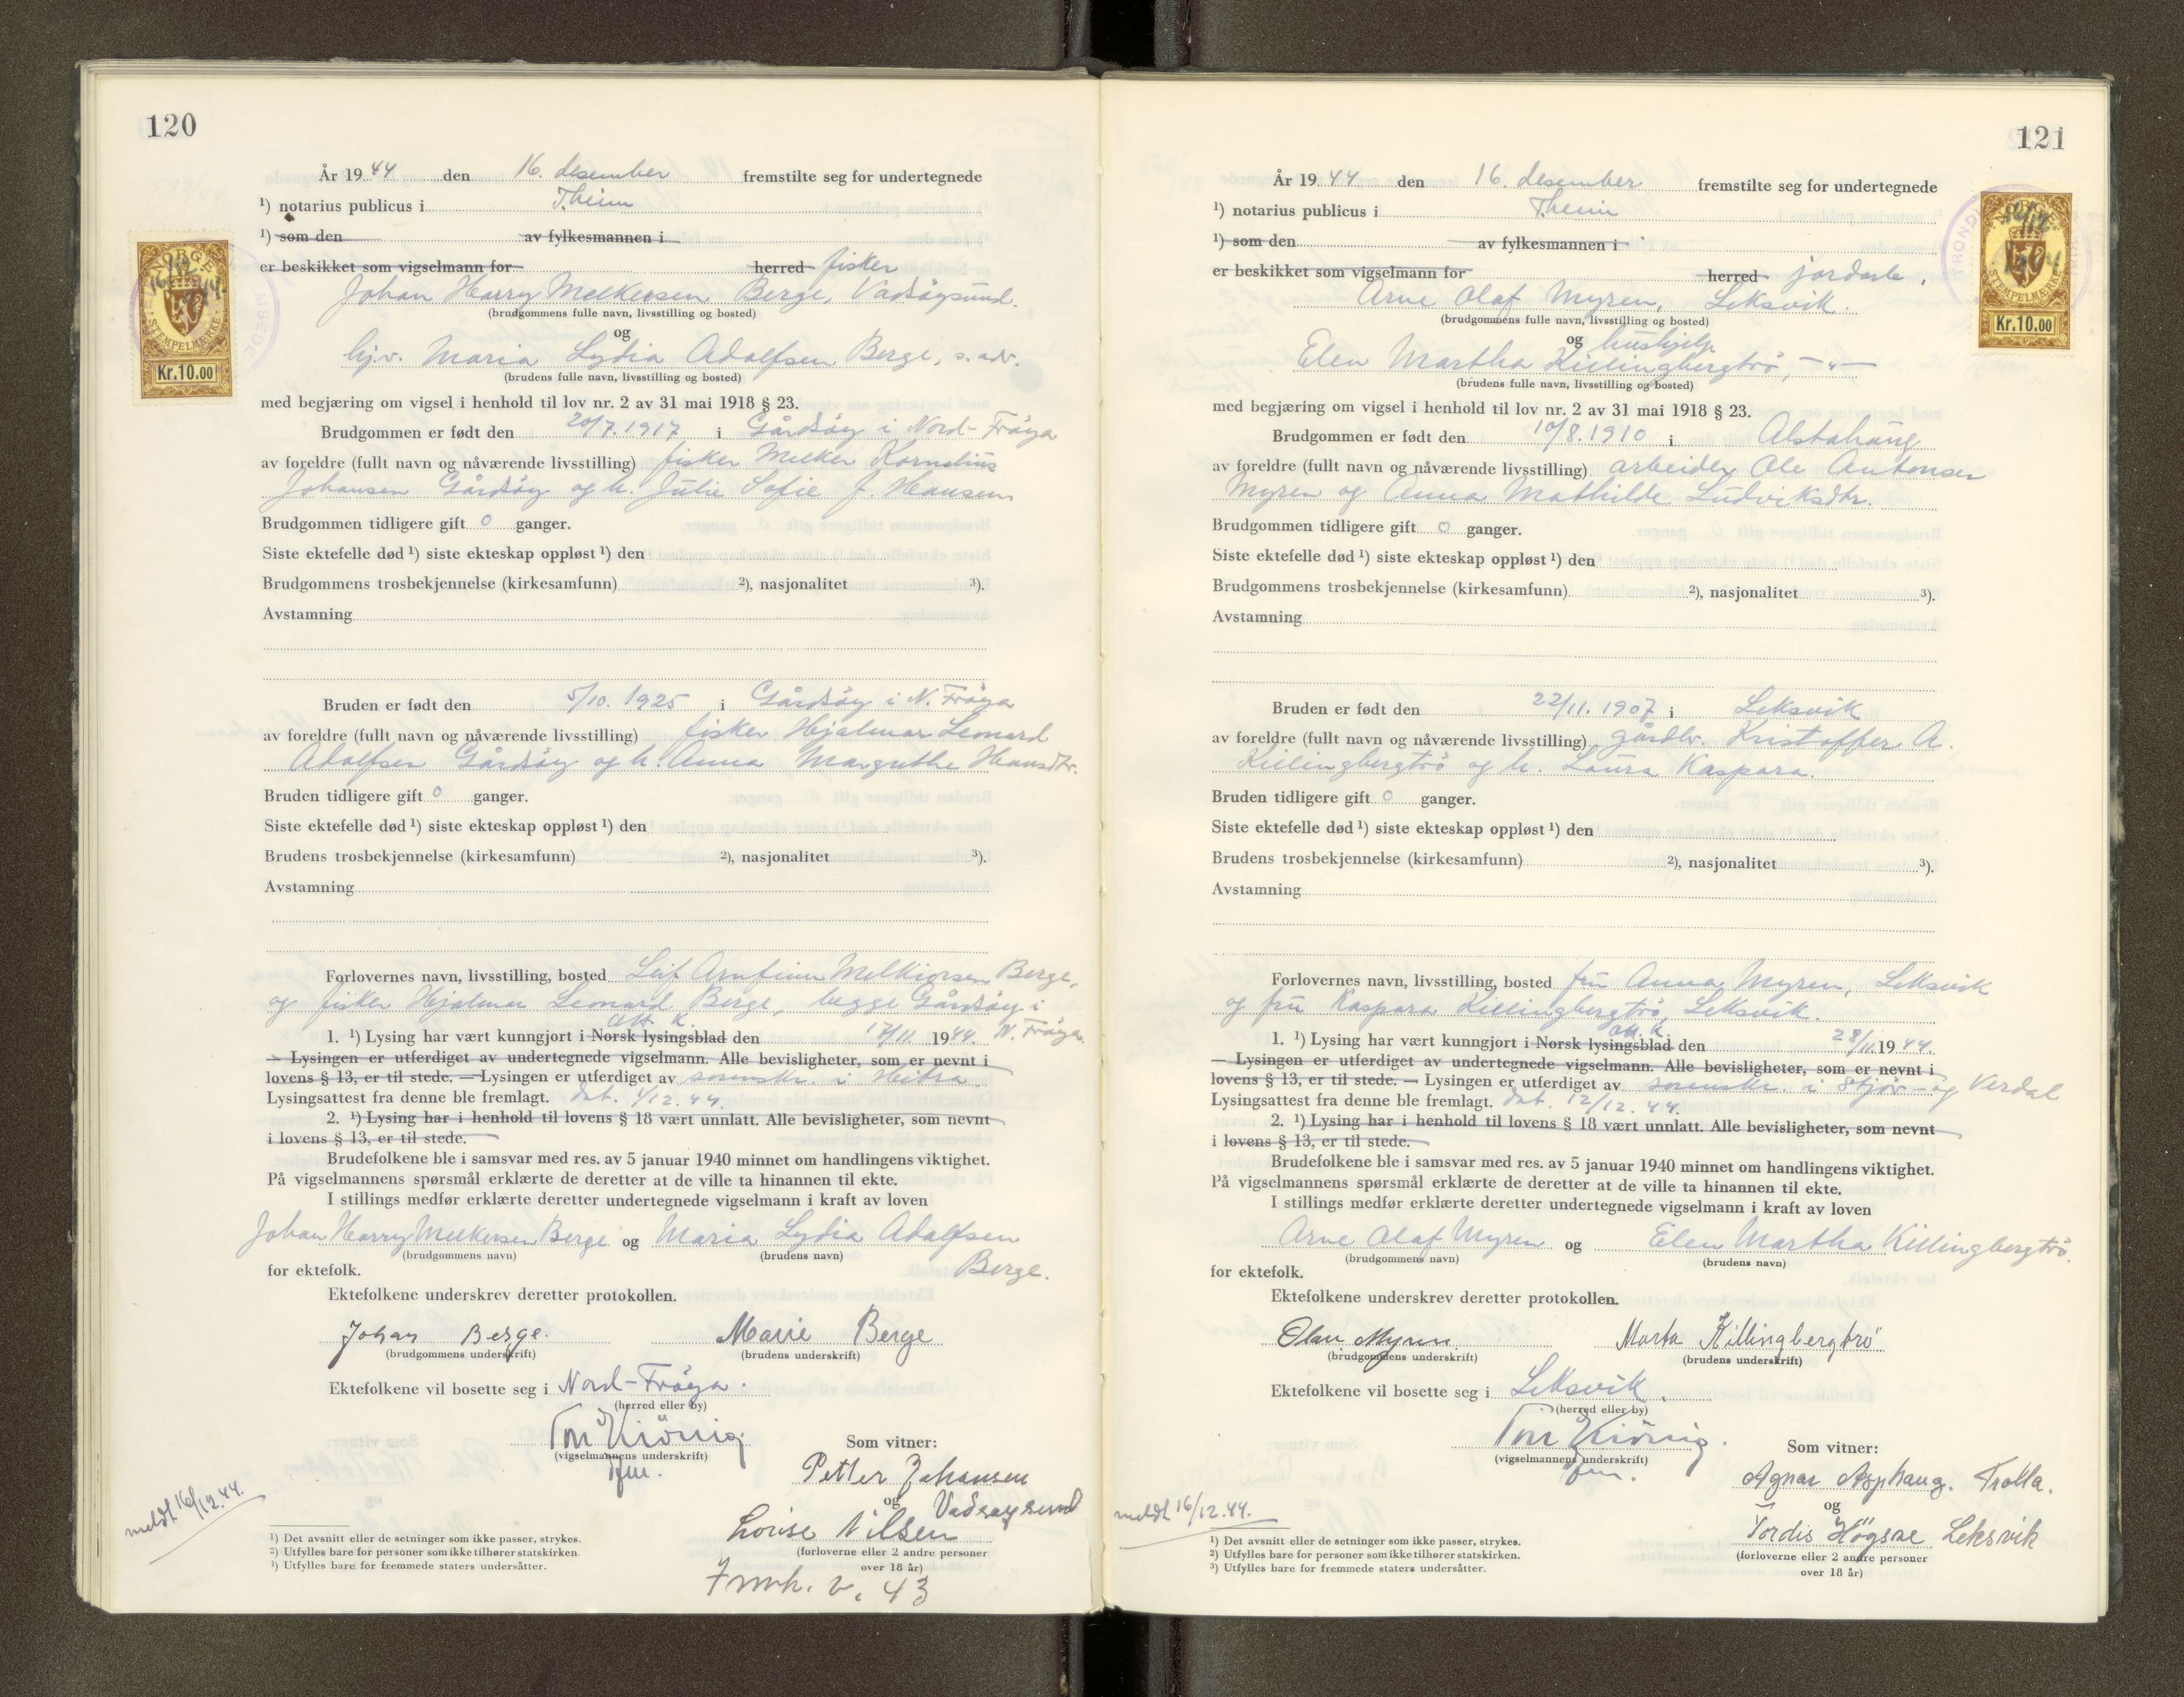 120
År 1944 den 16. desember fremstilte seg for undertegnede
¹) notarius publicus i T.heim
¹) som den av fylkesmannen i
er beskikket som vigselmann for herred fisker
Johan Harry Melkersen Berge, Vadsöysund.
(brudgommens fulle navn, livsstilling og bosted)
og
hj.v. Maria Lydia Adolfsen Berge, s. adr.
(brudens fulle navn, livsstilling og bosted)
med begjæring om vigsel i henhold til lov nr. 2 av 31 mai 1918 § 23.
Brudgommen er født den 20/7. 1917 i Gårdsöy i Nord-Fröya
av foreldre (fullt navn og nåværende livsstilling) fisker Melker Kornelius
Johansen Gårdsöy og h. Julie Sofie f. Hansen
Brudgommen tidligere gift 0 ganger.
Siste ektefelle død ¹) siste ekteskap oppløst ¹) den
Brudgommens trosbekjennelse (kirkesamfunn) ²), nasjonalitet ³).
Avstamning
Bruden er født den 5/10. 1925 i Gårdsöy i N. Fröya
av foreldre (fullt navn og nåværende livsstilling) fisker Hjalmar Leonard
Adolfsen Gårdsöy og h. Anna Margrethe Hansdtr.
Bruden tidligere gift 0 ganger.
Siste ektefelle død ¹) siste ekteskap oppløst ¹) den
Brudens trosbekjennelse (kirkesamfunn) ²), nasjonalitet ³).
Avstamning
Forlovernes navn, livsstilling, bosted Leif Arnfinn Melkiorsen Berge,
og fisker Hjalmar Leonard Berge, begge Gårdsöy i
N. Fröya.
att. k.
1. ¹) Lysing har vært kunngjort i Norsk lysingsblad den 17/11 1944.
— Lysingen er utferdiget av undertegnede vigselmann. Alle bevisligheter, som er nevnt i
lovens § 13, er til stede. — Lysingen er utferdiget av sorenskr. i Hitra
Lysingsattest fra denne ble fremlagt. dat. 1/12. 44.
2. ¹) Lysing har i henhold til lovens § 18 vært unnlatt. Alle bevisligheter, som nevnt
i lovens § 13, er til stede.
Brudefolkene ble i samsvar med res. av 5 januar 1940 minnet om handlingens viktighet.
På vigselmannens spørsmål erklærte de deretter at de ville ta hinannen til ekte.
I stillings medfør erklærte deretter undertegnede vigselmann i kraft av loven
Johan Harry Melkersen Berge og Maria Lydia Adolfsen
(brudgommens navn) (brudens navn)
Berge.
for ektefolk.
Ektefolkene underskrev deretter protokollen.
Johan Berge. Marie Berge
(brudgommens underskrift) (brudens underskrift)
Ektefolkene vil bosette seg i Nord-Fröya.
(herred eller by)
(vigselmannens underskrift)
Som vitner:
Petter Johansen
og Vadsøysund
Lovise Nilsen
(forloverne eller 2 andre personer
over 18 år)
meldt 16/12.44.
¹) Det avsnitt eller de setninger som ikke passer, strykes.
²) Utfylles bare for personer som ikke tilhører statskirken.
³) Utfylles bare for fremmede staters undersåtter.
NORGE
STEMPELMÆRKE
Kr.10.00
121
År 1944 den 16. desember fremstilte seg for undertegnede
¹) notarius publicus i T.heim
¹) som den av fylkesmannen i
er beskikket som vigselmann for herred jordarb.
Arne Olaf Myren, Leksvik.
(brudgommens fulle navn, livsstilling og bosted)
og hushjelp
Elen Martha Killingbergtrö, —"—
(brudens fulle navn, livsstilling og bosted)
med begjæring om vigsel i henhold til lov nr. 2 av 31 mai 1918 § 23.
Brudgommen er født den 10/8. 1910 i Alstahaug
av foreldre (fullt navn og nåværende livsstilling) arbeider Ole Antonsen
Myren og Anna Mathilde Ludviksdtr.
Brudgommen tidligere gift 0 ganger.
Siste ektefelle død ¹) siste ekteskap oppløst ¹) den
Brudgommens trosbekjennelse (kirkesamfunn) ²), nasjonalitet ³).
Avstamning
Bruden er født den 22/11. 1907 i Leksvik
av foreldre (fullt navn og nåværende livsstilling) gårdbr. Kristoffer A.
Killingbergtrö og h. Laura Kaspara.
Bruden tidligere gift 0 ganger.
Siste ektefelle død ¹) siste ekteskap oppløst ¹) den
Brudens trosbekjennelse (kirkesamfunn) ²), nasjonalitet ³).
Avstamning
Forlovernes navn, livsstilling, bosted fru Anna Myren, Leksvik
og fru Kaspara Killingbergtrö, Leksvik.
att. k.
1. ¹) Lysing har vært kunngjort i Norsk lysingsblad den 28/11. 1944.
— Lysingen er utferdiget av undertegnede vigselmann. Alle bevisligheter, som er nevnt i
lovens § 13, er til stede. — Lysingen er utferdiget av sorenskr. i Stjör- og Verdal
Lysingsattest fra denne ble fremlagt. dat. 12/12. 44.
2. ¹) Lysing har i henhold til lovens § 18 vært unnlatt. Alle bevisligheter, som nevnt
i lovens § 13, er til stede.
Brudefolkene ble i samsvar med res. av 5 januar 1940 minnet om handlingens viktighet.
På vigselmannens spørsmål erklærte de deretter at de ville ta hinannen til ekte.
I stillings medfør erklærte deretter undertegnede vigselmann i kraft av loven
Arne Olaf Myren og Elen Martha Killingbergtrö.
(brudgommens navn) (brudens navn)
for ektefolk.
Ektefolkene underskrev deretter protokollen.
Olav Myren Marta Killingbergtrö
(brudgommens underskrift) (brudens underskrift)
Ektefolkene vil bosette seg i Leksvik.
(herred eller by)
(vigselmannens underskrift)
Som vitner:
Agnar Asphaug. Trolla.
og
Tordis Högsæ Leksvik
(forloverne eller 2 andre personer
over 18 år)
meldt 16/12.44.
¹) Det avsnitt eller de setninger som ikke passer, strykes.
²) Utfylles bare for personer som ikke tilhører statskirken.
³) Utfylles bare for fremmede staters undersåtter.
NORGE
STEMPELMÆRKE
Kr.10.00